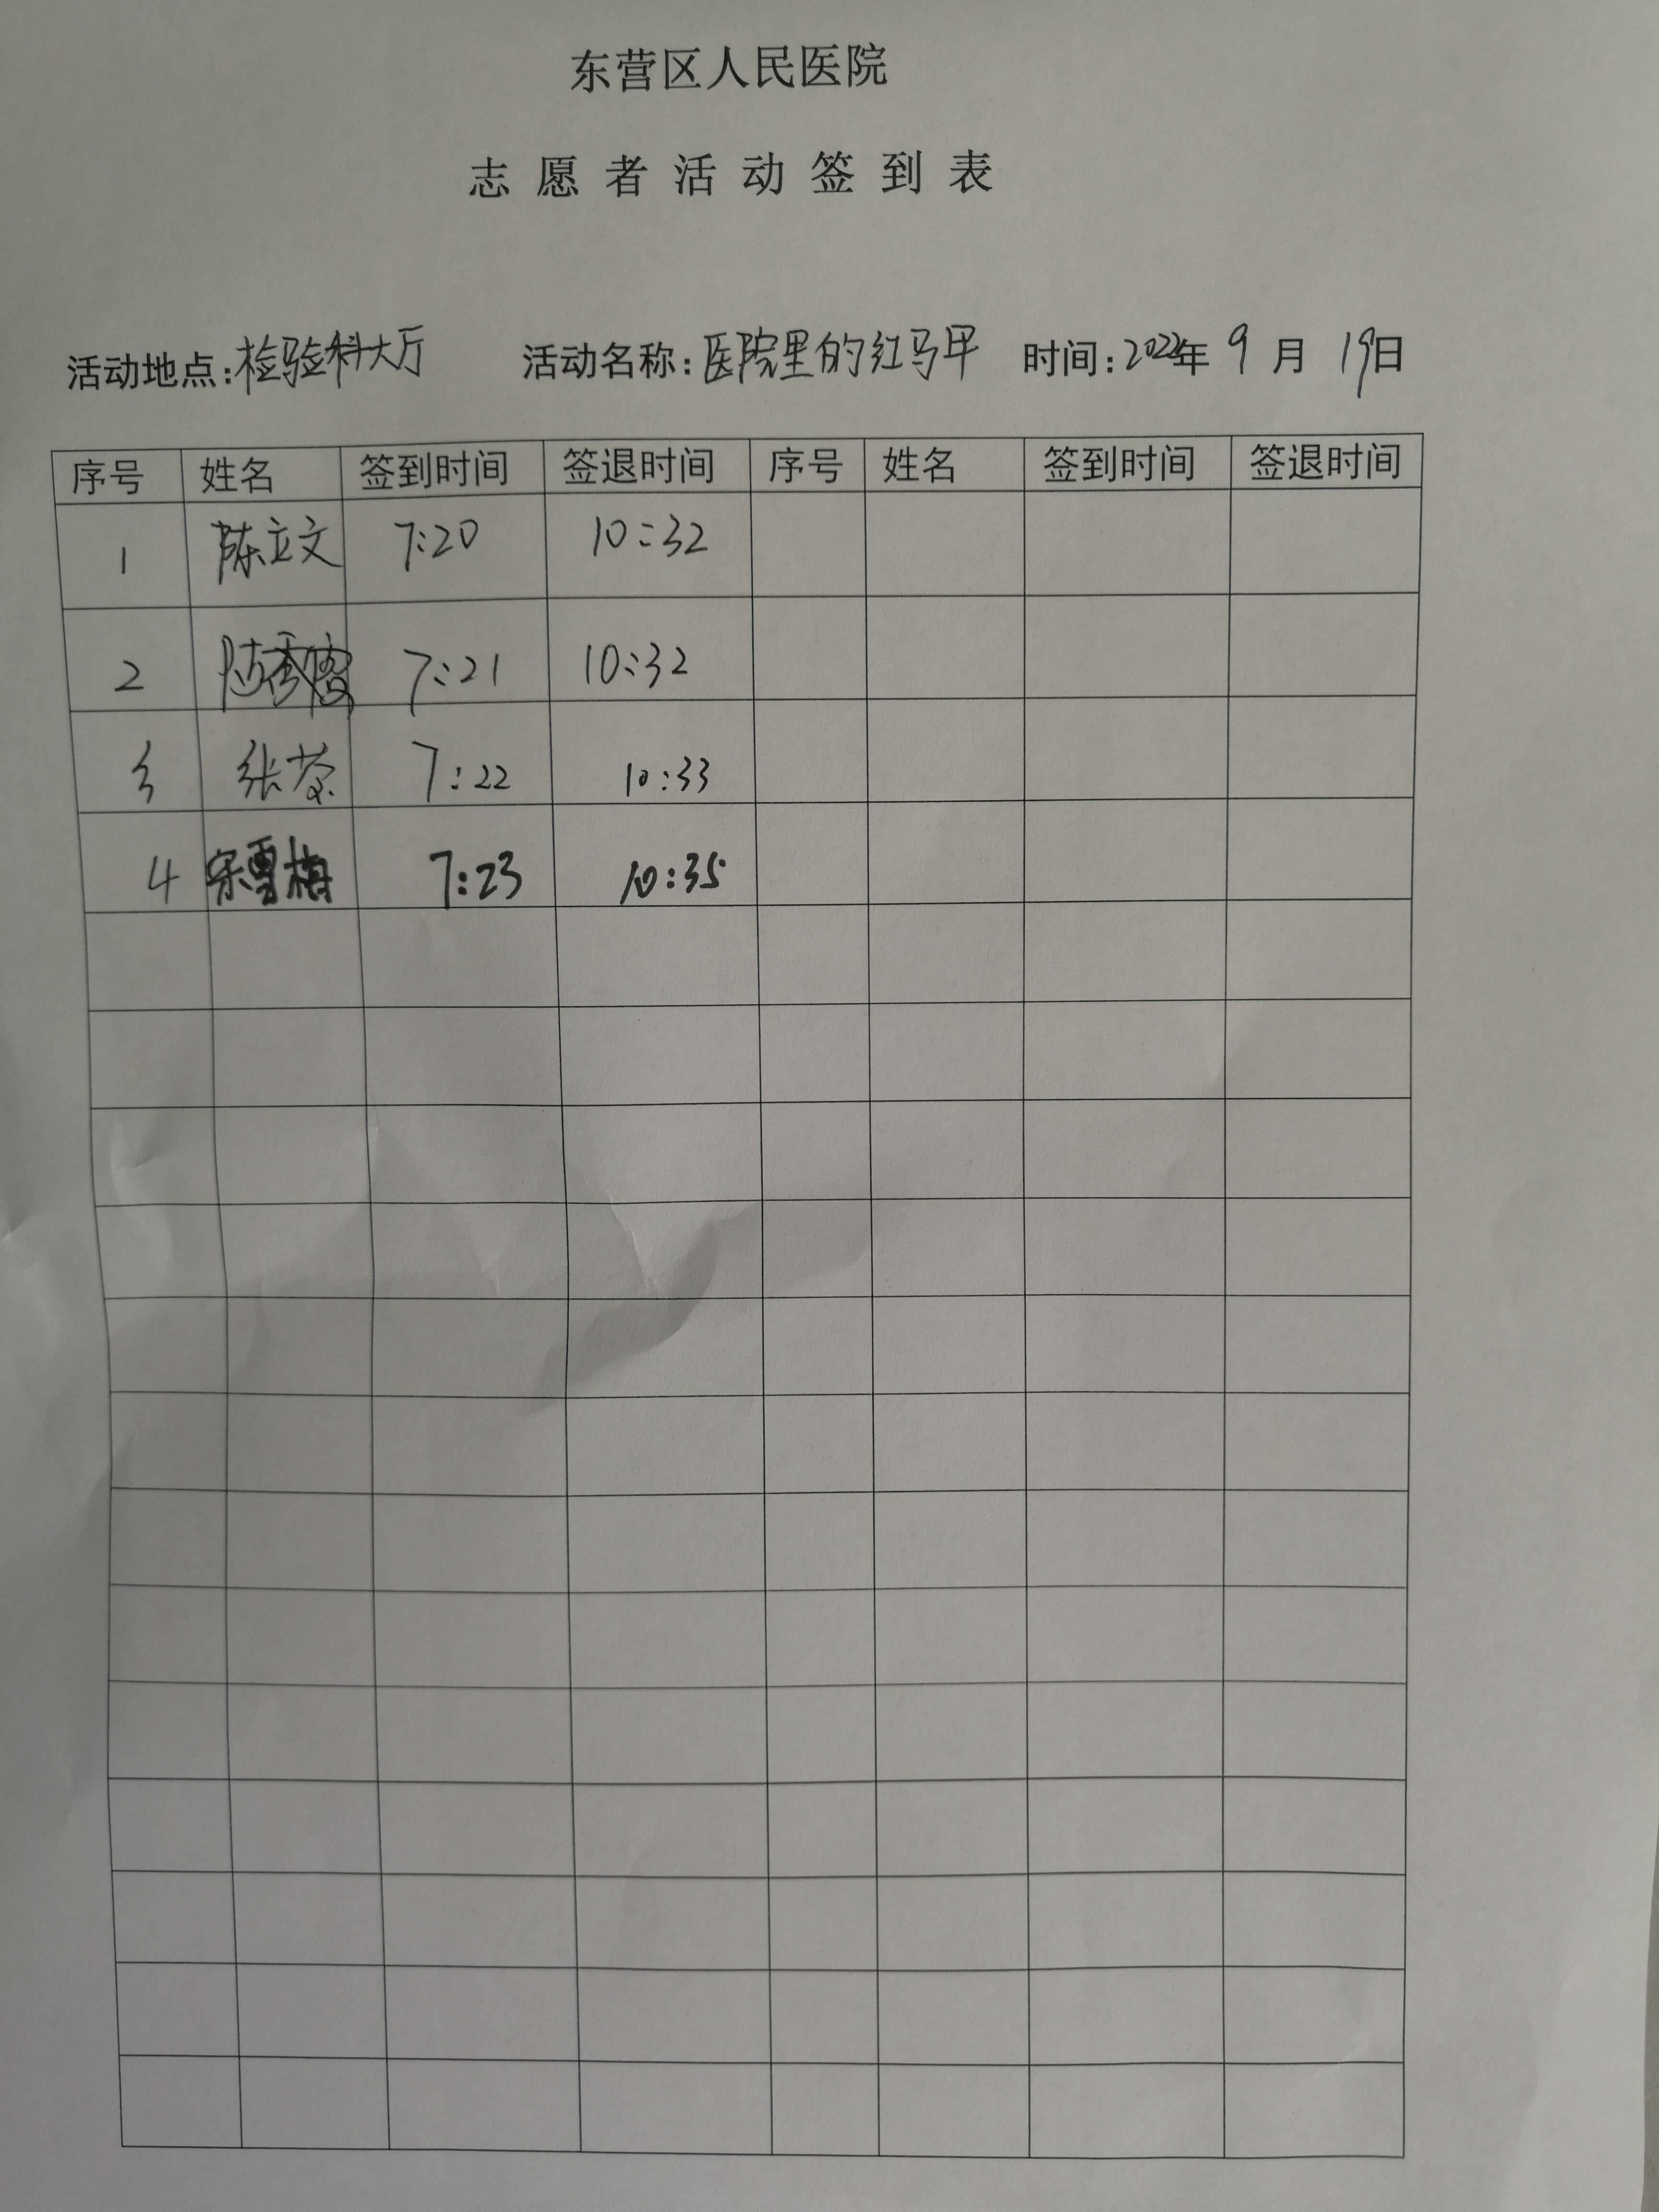 东营区人民医院
志愿者活动签到表
活动地点:检验科大厅 活动名称:医院里的红马甲 时间:2022年 9 月 19日
序号 姓名 签到时间 签退时间 序号 姓名 签到时间 签退时间
1 陈立文 7:20 10:32
2 7:21 10:32
3 张 7:22 10:33
4 宋雪梅 7:23 10:35